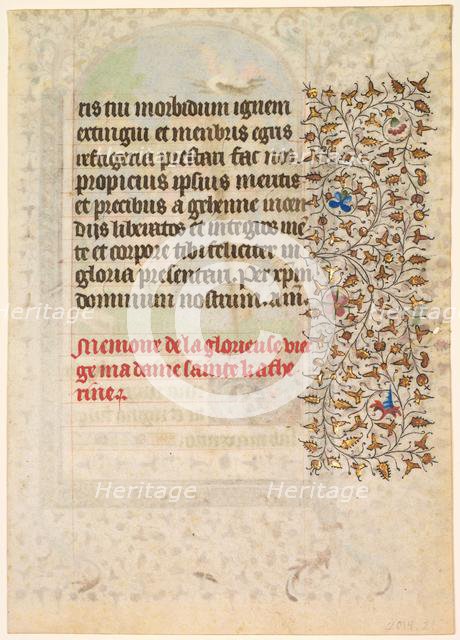 tis tui morbidum ignem
extingui et membris egris
refrigeria prestari fac nos
propicius ipsius meritis
et precibus a gehenne incen
dijs liberatos et integros me
te et corpore tibi feliciter in
gloria presentari. Per xp̄m
dominum nostrum. am.
Memoire de la glorieuse vier
ge madame sainte kathe
rine.
Heritage
Heritage
Heritage
Heritage
Heritage